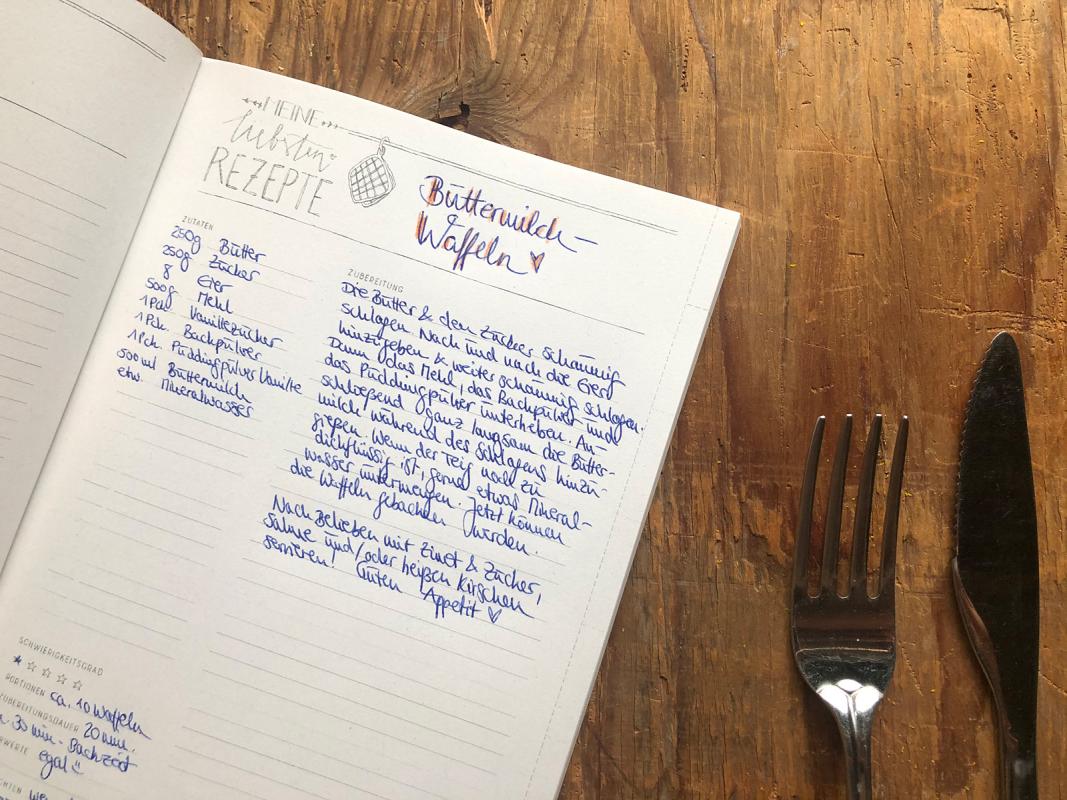 MEINE
liebsten
REZEPTE
Buttermilch-
Waffeln
ZUTATEN
250g Butter
250g Zucker
8 Eier
500g Mehl
1Pck. Vanillezucker
1Pck. Backpulver
1Pck. Puddingpulver Vanille
500ml Buttermilch
etw. Mineralwasser
ZUBEREITUNG
Die Butter & den Zucker schaumig
schlagen. Nach und nach die Eier
hinzugeben & weiter schaumig schlagen.
Dann das Mehl, das Backpulver und
das Puddingpulver unterheben. An-
schließend ganz langsam die Butter-
milch während des Schlagens hinzu-
gießen. Wenn der Teig noch zu
dickflüssig ist, gerne etwas Mineral-
wasser untermengen. Jetzt können
die Waffeln gebacken werden.
Nach Belieben mit Zimt & Zucker,
Sahne und/oder heißen Kirschen
servieren! Guten Appetit
SCHWIERIGKEITSGRAD
PORTIONEN ca. 10 Waffeln
ZUBEREITUNGSDAUER 20 min.
30 min. Backzeit
egal